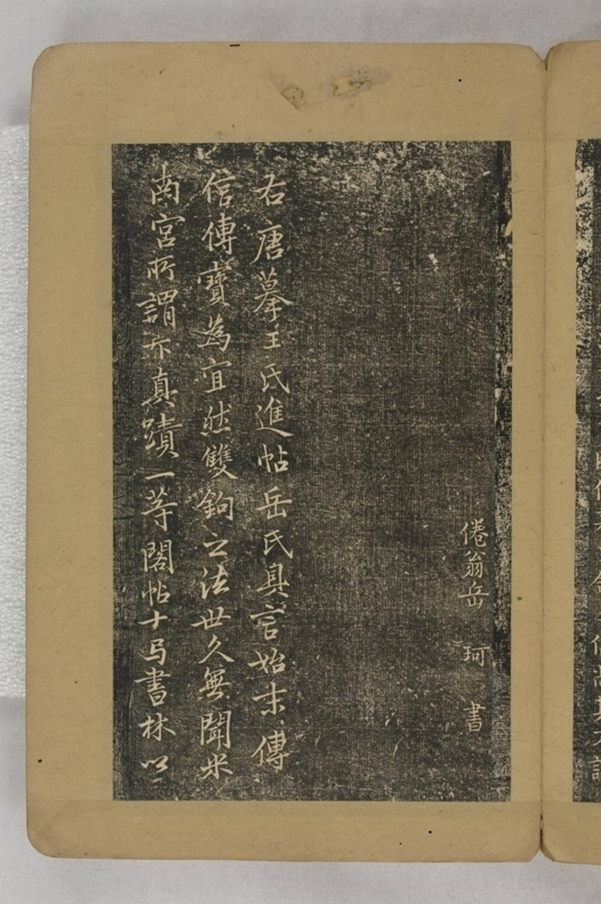 倦翁岳珂書
右唐摹王氏進帖岳氏具言始末傳
信傳寶為宜然雙鉤之法世久無聞米
南宮所謂下真蹟一等閣帖十与書林以